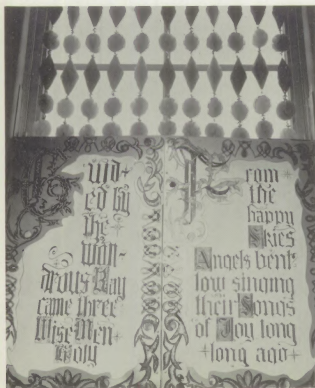 Guid
ed by
the
won-
drous Ray
came three
Wise Men
Holy
From
the
happy
Skies
Angels bent
low singing
their Songs
of Joy long
long ago